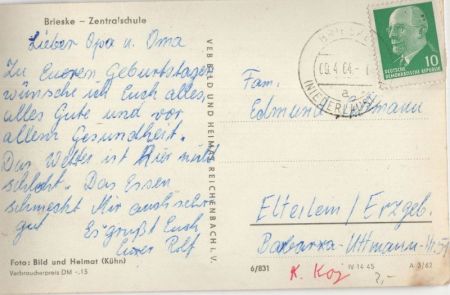 Brieske – Zentralschule
Lieber Opa u. Oma
Zu Eueren Geburtstagen
wünsche ich Euch alles
alles Gute und vor
allem Gesundheit.
Das Wetter ist hier nicht
schlecht. Das Essen
schmeckt mir auch sehr
gut Es grüßt Euch
Euer Rolf
Foto: Bild und Heimat (Kühn)
Verbraucherpreis DM -.15
VEB BILD UND HEIMAT REICHENBACH i. V.
BRIESKE
09.4.64.-1
a
(NIEDERLAUS)
10
DEUTSCHE
DEMOKRATISCHE REPUBLIK
Fam.
Edmund
Elterlein / Erzgeb.
Barbara-Uttmann-Str.
6/831
K. Koj
IV-14-45
A 3/62
2,-